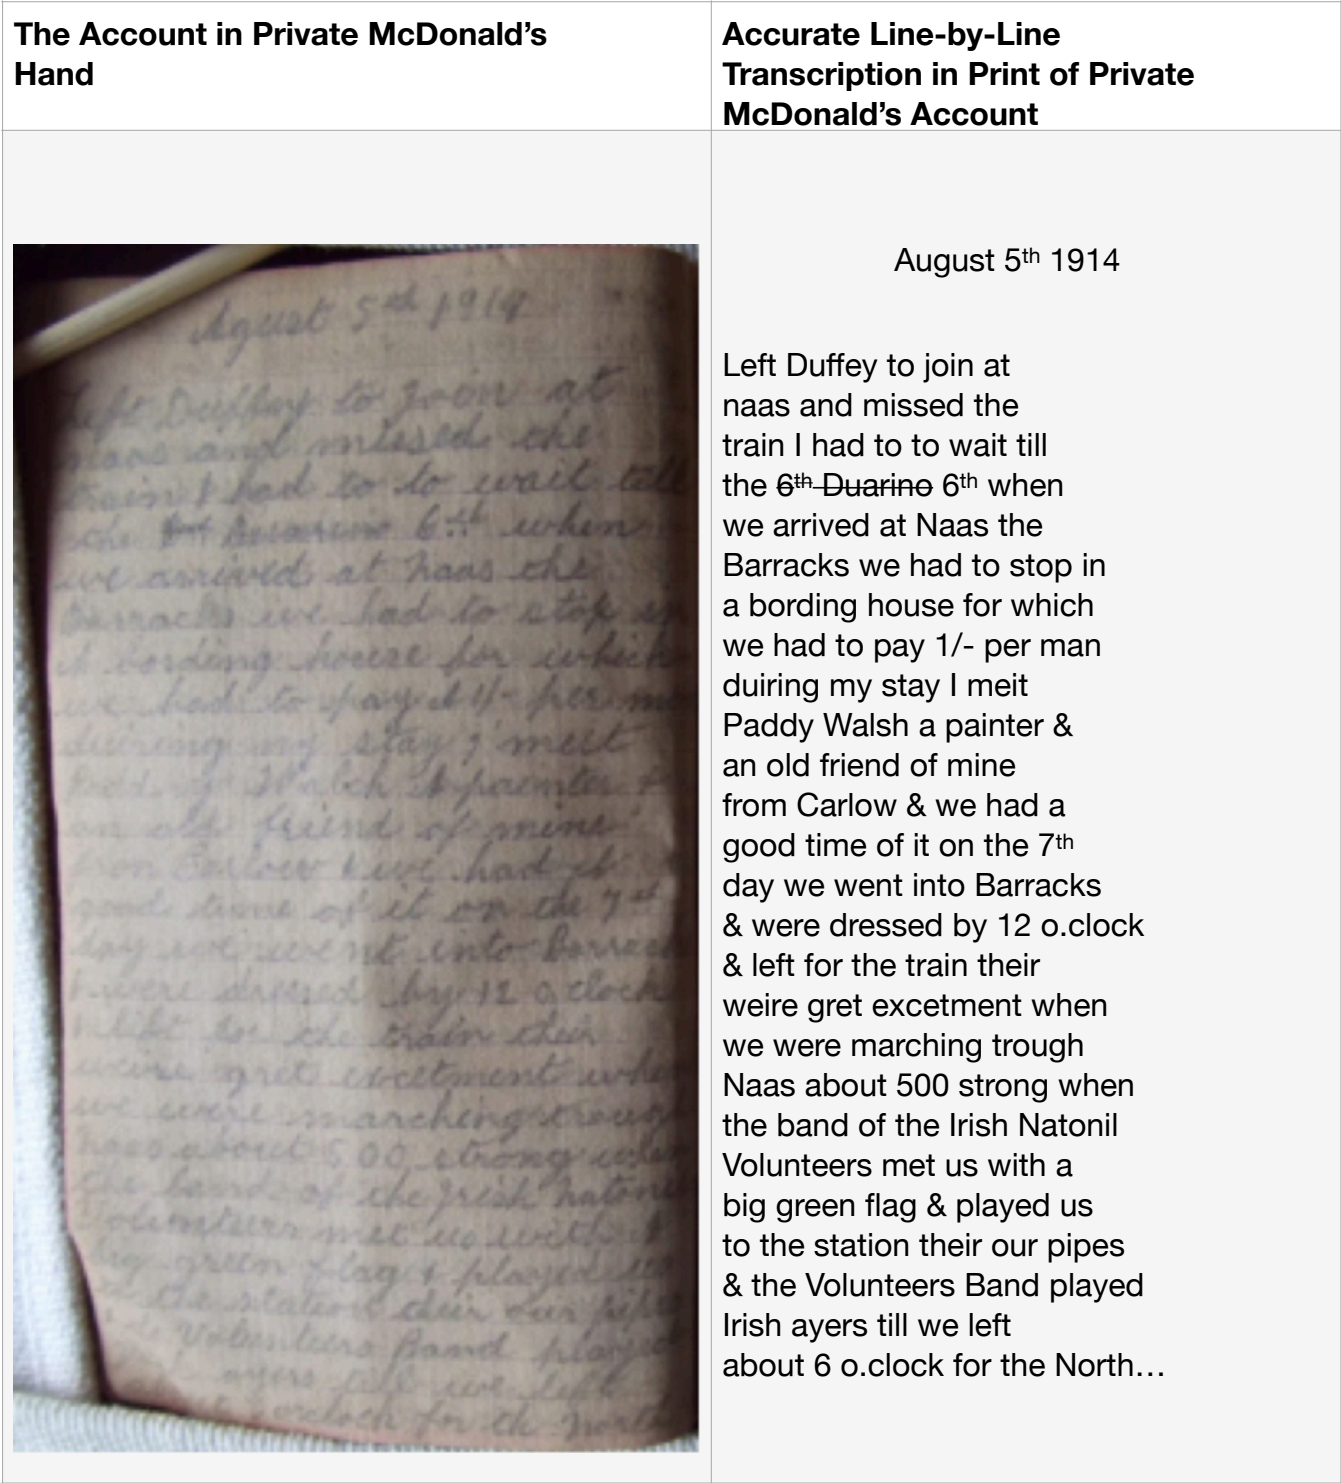 The Account in Private McDonald’s
Hand
Agust 5th 1914
Left Duffey to join at
naas and missed the
train I had to to wait till
the 6th Duarino 6th when
we arrived at Naas the
Barracks we had to stop in
a bording house for which
we had to pay 1/- per
duiring my stay I meit
Walsh a painter &
an old friend of mine
from Carlow & we had a
good time of it on the 7th
day we went into Barrack
& were dressed by 12 o.clock
& left for the train their
weire gret excetment when
we were marching troug
Naas about 500 strong when
the band of the Irish Natoni
Volunteers met us with a
big green flag & played us
the station their our pipes
Volunteers Band played
ayers till we left
o.clock for th North
Accurate Line-by-Line
Transcription in Print of Private
McDonald’s Account
August 5th 1914
Left Duffey to join at
naas and missed the
train I had to to wait till
the 6th Duarino 6th when
we arrived at Naas the
Barracks we had to stop in
a bording house for which
we had to pay 1/- per man
duiring my stay I meit
Paddy Walsh a painter &
an old friend of mine
from Carlow & we had a
good time of it on the 7th
day we went into Barracks
& were dressed by 12 o.clock
& left for the train their
weire gret excetment when
we were marching trough
Naas about 500 strong when
the band of the Irish Natonil
Volunteers met us with a
big green flag & played us
to the station their our pipes
& the Volunteers Band played
Irish ayers till we left
about 6 o.clock for the North…